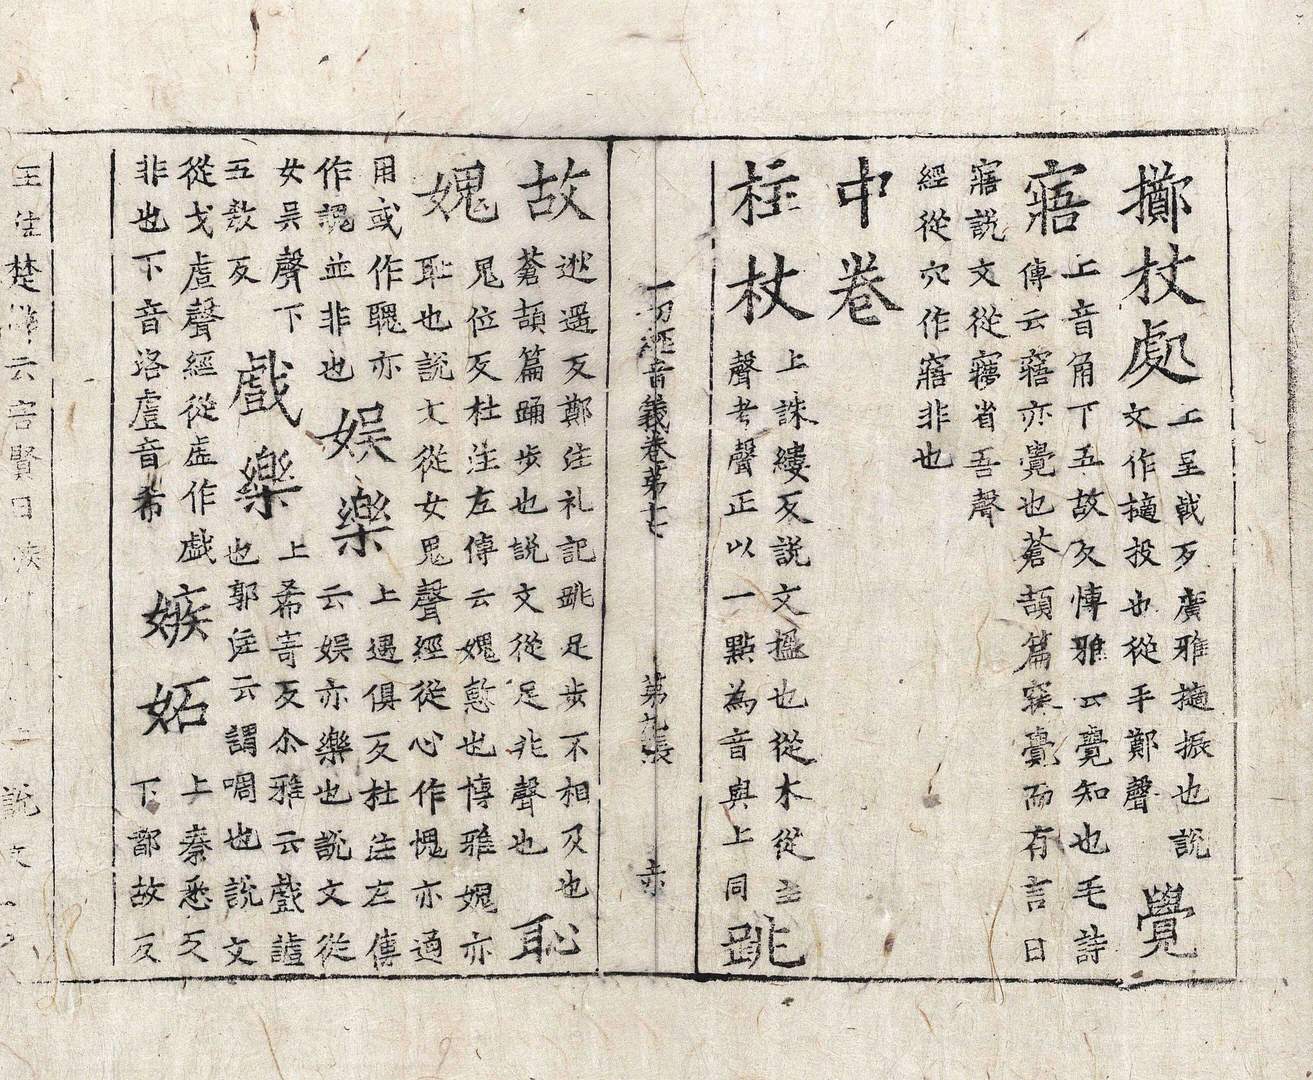 擲杖處 上呈戟反廣雅擿振也說
文作擿投也從手鄭聲 覺
寤 上音角下五故反博雅云覺知也毛詩
傳云寤亦覺也蒼頡篇寐覺而有言曰
寤說文從㝱省吾聲
經從穴作寤非也
中卷
柱杖 上誅縷反說文搵也從木從主
聲考聲正以一點為音與上同 跳
一切經音義卷第十七 第九張 亦
故 逃遥反鄭注礼記跳足步不相及也
蒼頡篇踊步也說文從足兆聲也 恥
媿 鬼位反杜注左傳云媿慙也博雅媿亦
恥也說文從女鬼聲經從心作愧亦通
用或作聭亦
作謉並非也 娛樂 上遇俱反杜注左傳
云娛亦樂也說文從
女吳聲下
五教反 戲樂 上希寄反尒雅云戲謔
也郭注云謂啁也說文
從戈䖒聲經從虛作戯
非也下音洛䖒音希 嫉妬 上秦悉反
下都故反
王注楚辭云害賢曰嫉 說文